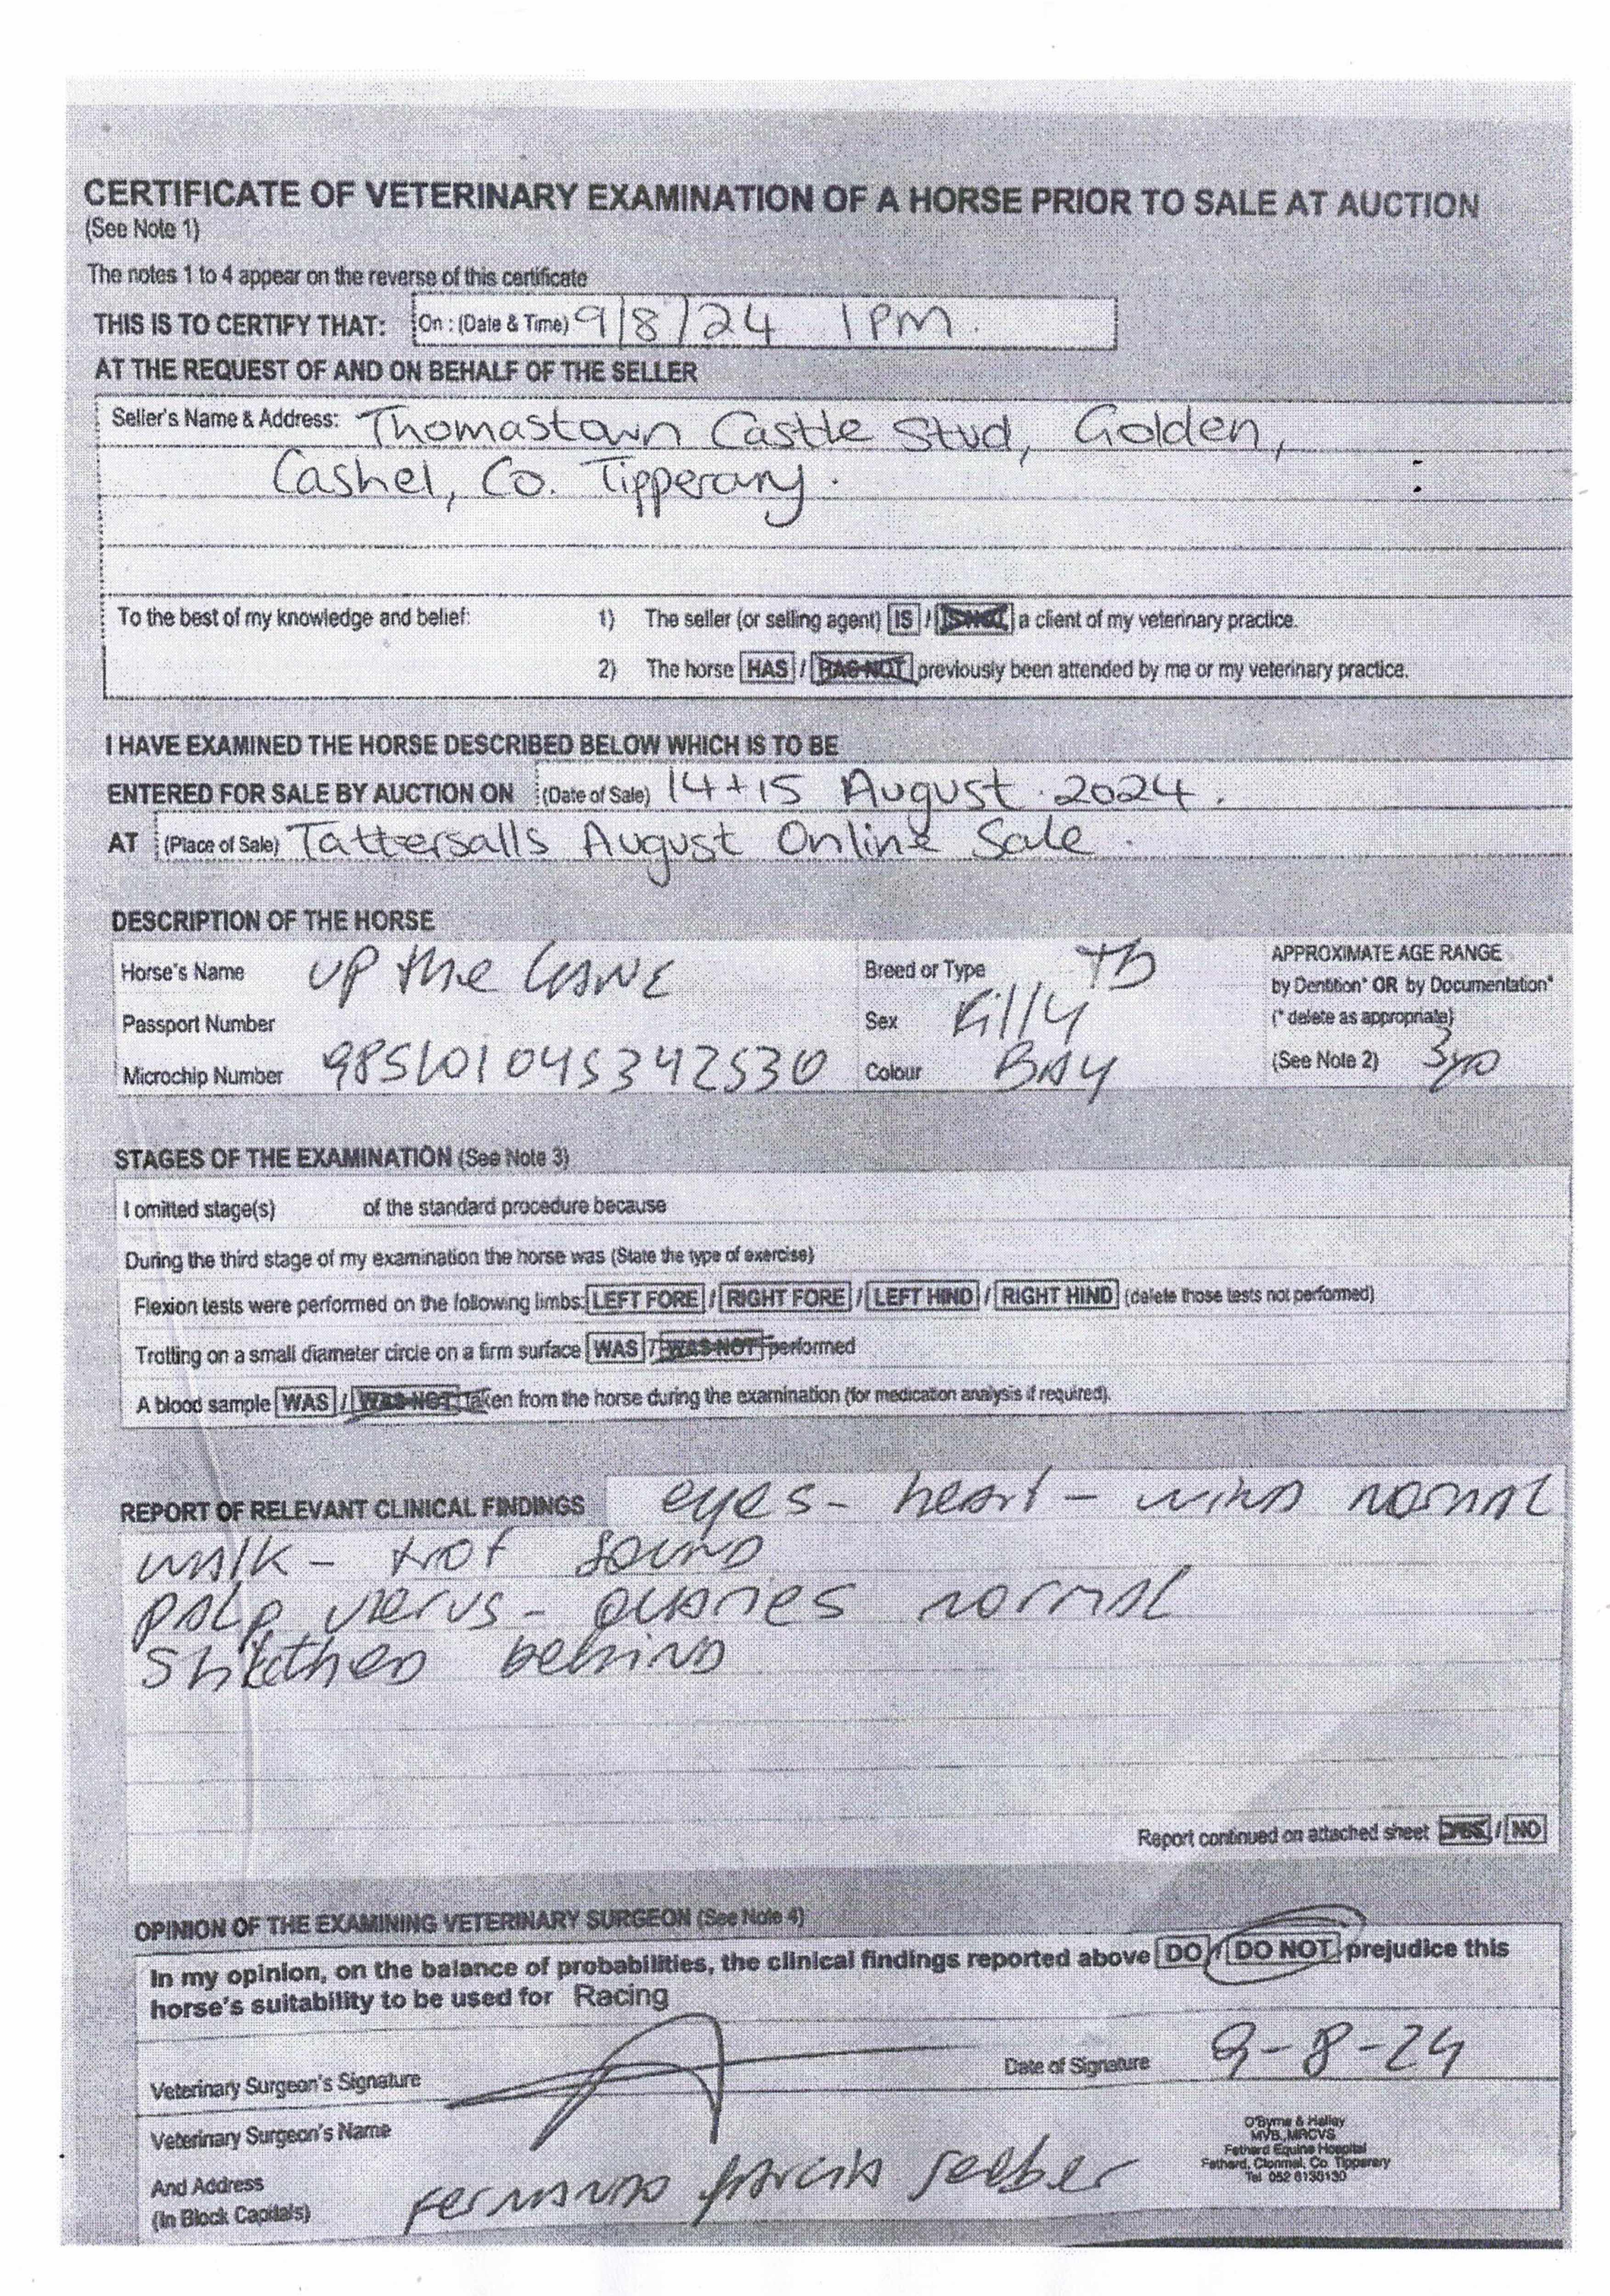 CERTIFICATE OF VETERINARY EXAMINATION OF A HORSE PRIOR TO SALE AT AUCTION
(See Note 1)
The notes 1 to 4 appear on the reverse of this certificate
THIS IS TO CERTIFY THAT: On : (Date & Time) 9/8/24 1PM.
AT THE REQUEST OF AND ON BEHALF OF THE SELLER
Seller's Name & Address: Thomastown Castle Stud, Golden,
Cashel, Co. Tipperary.
To the best of my knowledge and belief: 1) The seller (or selling agent) IS / IS NOT a client of my veterinary practice.
2) The horse HAS / HAS NOT previously been attended by me or my veterinary practice.
I HAVE EXAMINED THE HORSE DESCRIBED BELOW WHICH IS TO BE
ENTERED FOR SALE BY AUCTION ON (Date of Sale) 14+15 August 2024.
AT (Place of Sale) Tattersalls August Online Sale.
DESCRIPTION OF THE HORSE
Horse's Name UP the Breed or Type Tb APPROXIMATE AGE RANGE
by Dentition* OR by Documentation*
Passport Number Sex Filly (* delete as appropriate)
Microchip Number 985101045342530 Colour BAY (See Note 2) 3yo
STAGES OF THE EXAMINATION (See Note 3)
I omitted stage(s) of the standard procedure because
During the third stage of my examination the horse was (State the type of exercise)
Flexion tests were performed on the following limbs: LEFT FORE / RIGHT FORE / LEFT HIND / RIGHT HIND (delete those tests not performed)
Trotting on a small diameter circle on a firm surface WAS / WAS NOT performed
A blood sample WAS / WAS NOT taken from the horse during the examination (for medication analysis if required).
REPORT OF RELEVANT CLINICAL FINDINGS eyes - heart - wind normal
walk - trot sound
palp - ovaries normal
behind
Report continued on attached sheet YES / NO
OPINION OF THE EXAMINING VETERINARY SURGEON (See Note 4)
In my opinion, on the balance of probabilities, the clinical findings reported above DO / DO NOT prejudice this
horse's suitability to be used for Racing
Veterinary Surgeon's Signature Date of Signature 9-8-24
Veterinary Surgeon's Name
And Address
(In Block Capitals) Fernando Garcia Seeber
O'Byrne & Halley
MVB., MRCVS
Fethard Equine Hospital
Fethard, Clonmel, Co. Tipperary
Tel 052 6130130